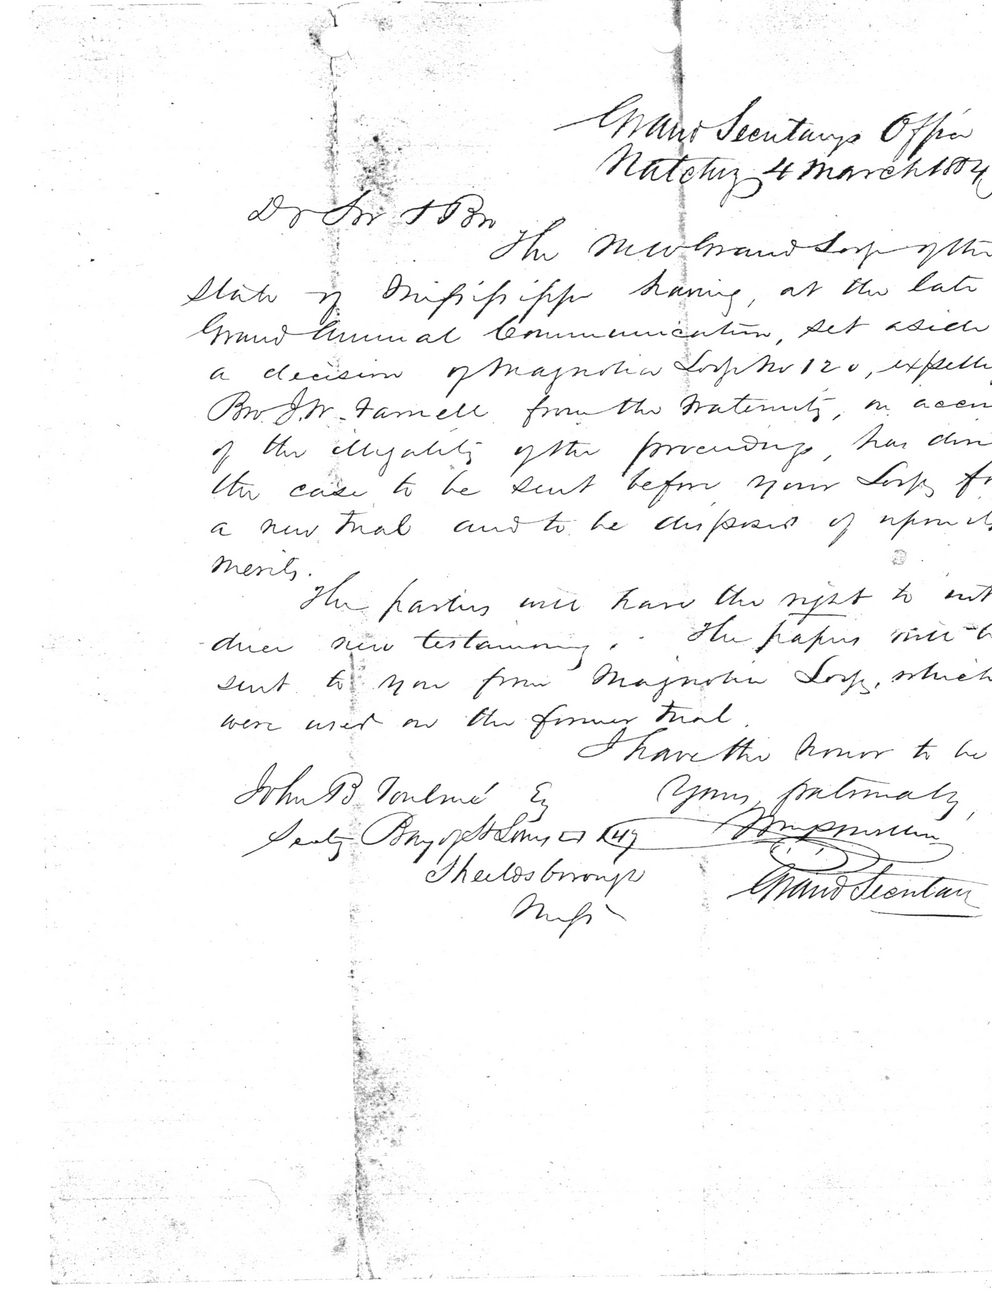 Grand Secretarys Office
Natchez 4 March 18
Dr Sir & Bro
The M W Grand Lodge of the
State of Mississippi having, at the late
Grand Annual Communication, set aside
a decision of Magnolia Lodge No 120, expelli
Bro J. W. Farnell from the Fraternity, on accou
of the illegality of the proceedings, has dire
the case to be sent before your Lodge fo
a new trial and to be disposed of upon its
merits.
The parties will have the right to int
duce new testimony. The papers will b
sent to you from Magnolia Lodge, which
were used on the former trial.
I have the honor to be
Yours, fraternally,
John B Toulmé Esq
Secty Bay of St Louis 
Grand Secretary
Shieldsborough
Missi